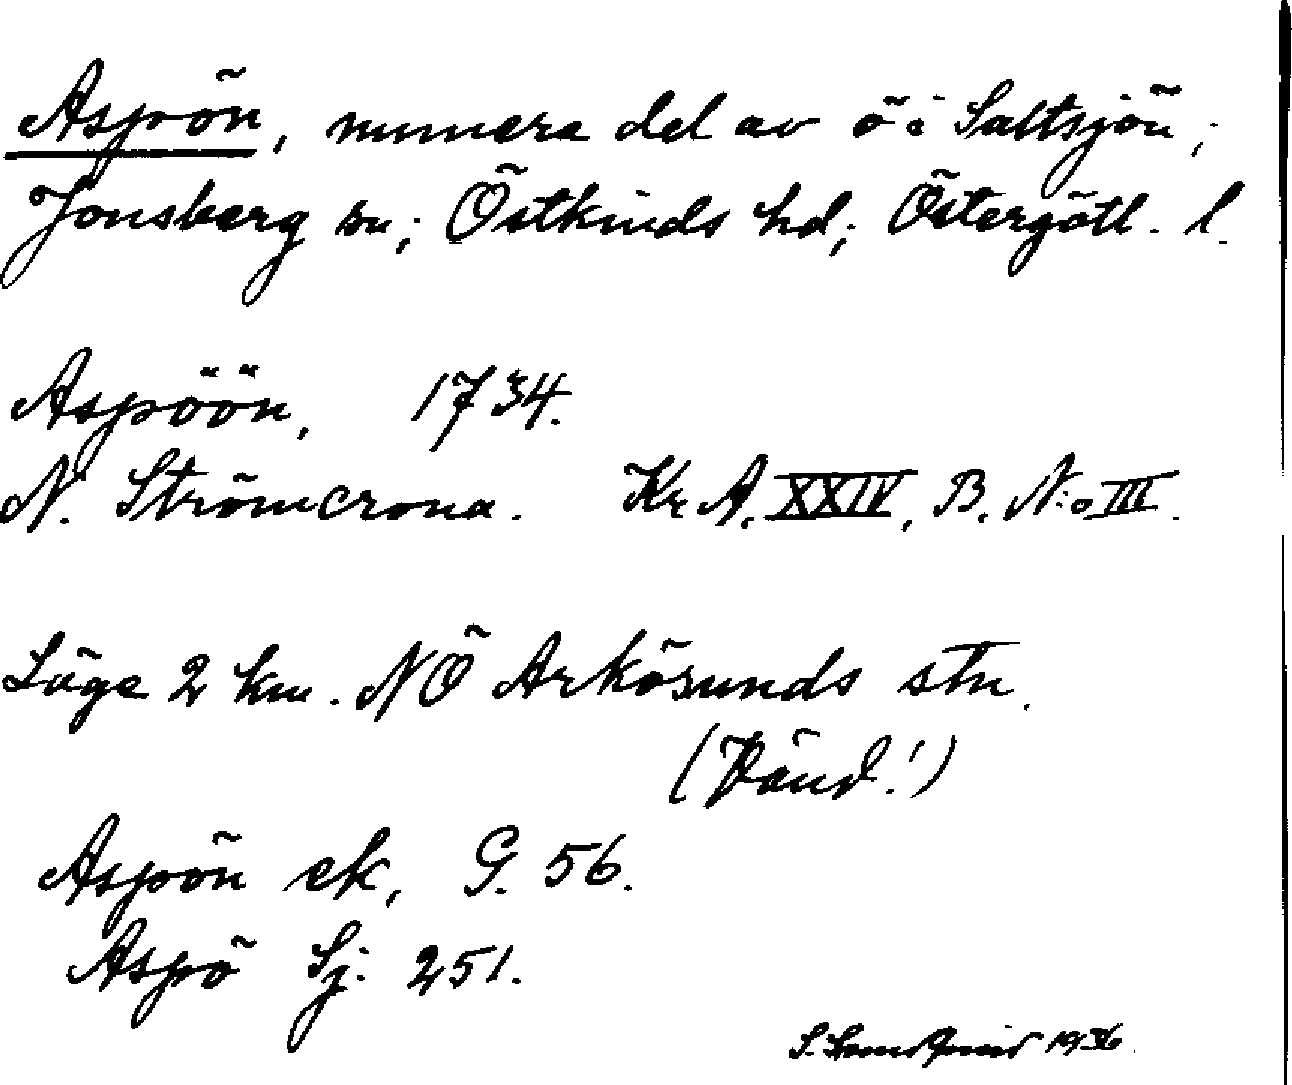 Aspön, numera del av ö i Saltsjön,
Jonsberg sn; Östkinds hd; Östergötl. l.
Aspöön, 1734.
N. Strömcrona. Kr. A. XXIV, B. N:o III.
Läge 2 km. NÖ Arkösunds stn.
(Vänd!)
Aspön ek, G. 56.
Aspö Sj. 251.
S. 1936